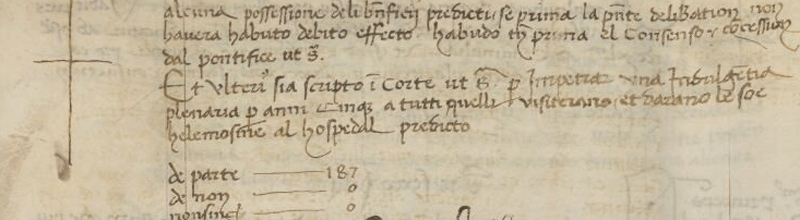 alcuna possessione deli bñficij predicti, se prima la pñte deliberation non
havera habuto debito effecto habudo th prima el Consenso, & cõcession
dal pontifice ut s̃.
Et Ulteri⁹ sia scripto ĩ Corte ut s̃ p Impetrar una Indulgẽtia
plenaria p anni Cinq a tutti quelli visiterano, et darano le soe
helemosine al hospedal predicto
de parte 187
de non 0
nonsinc 0